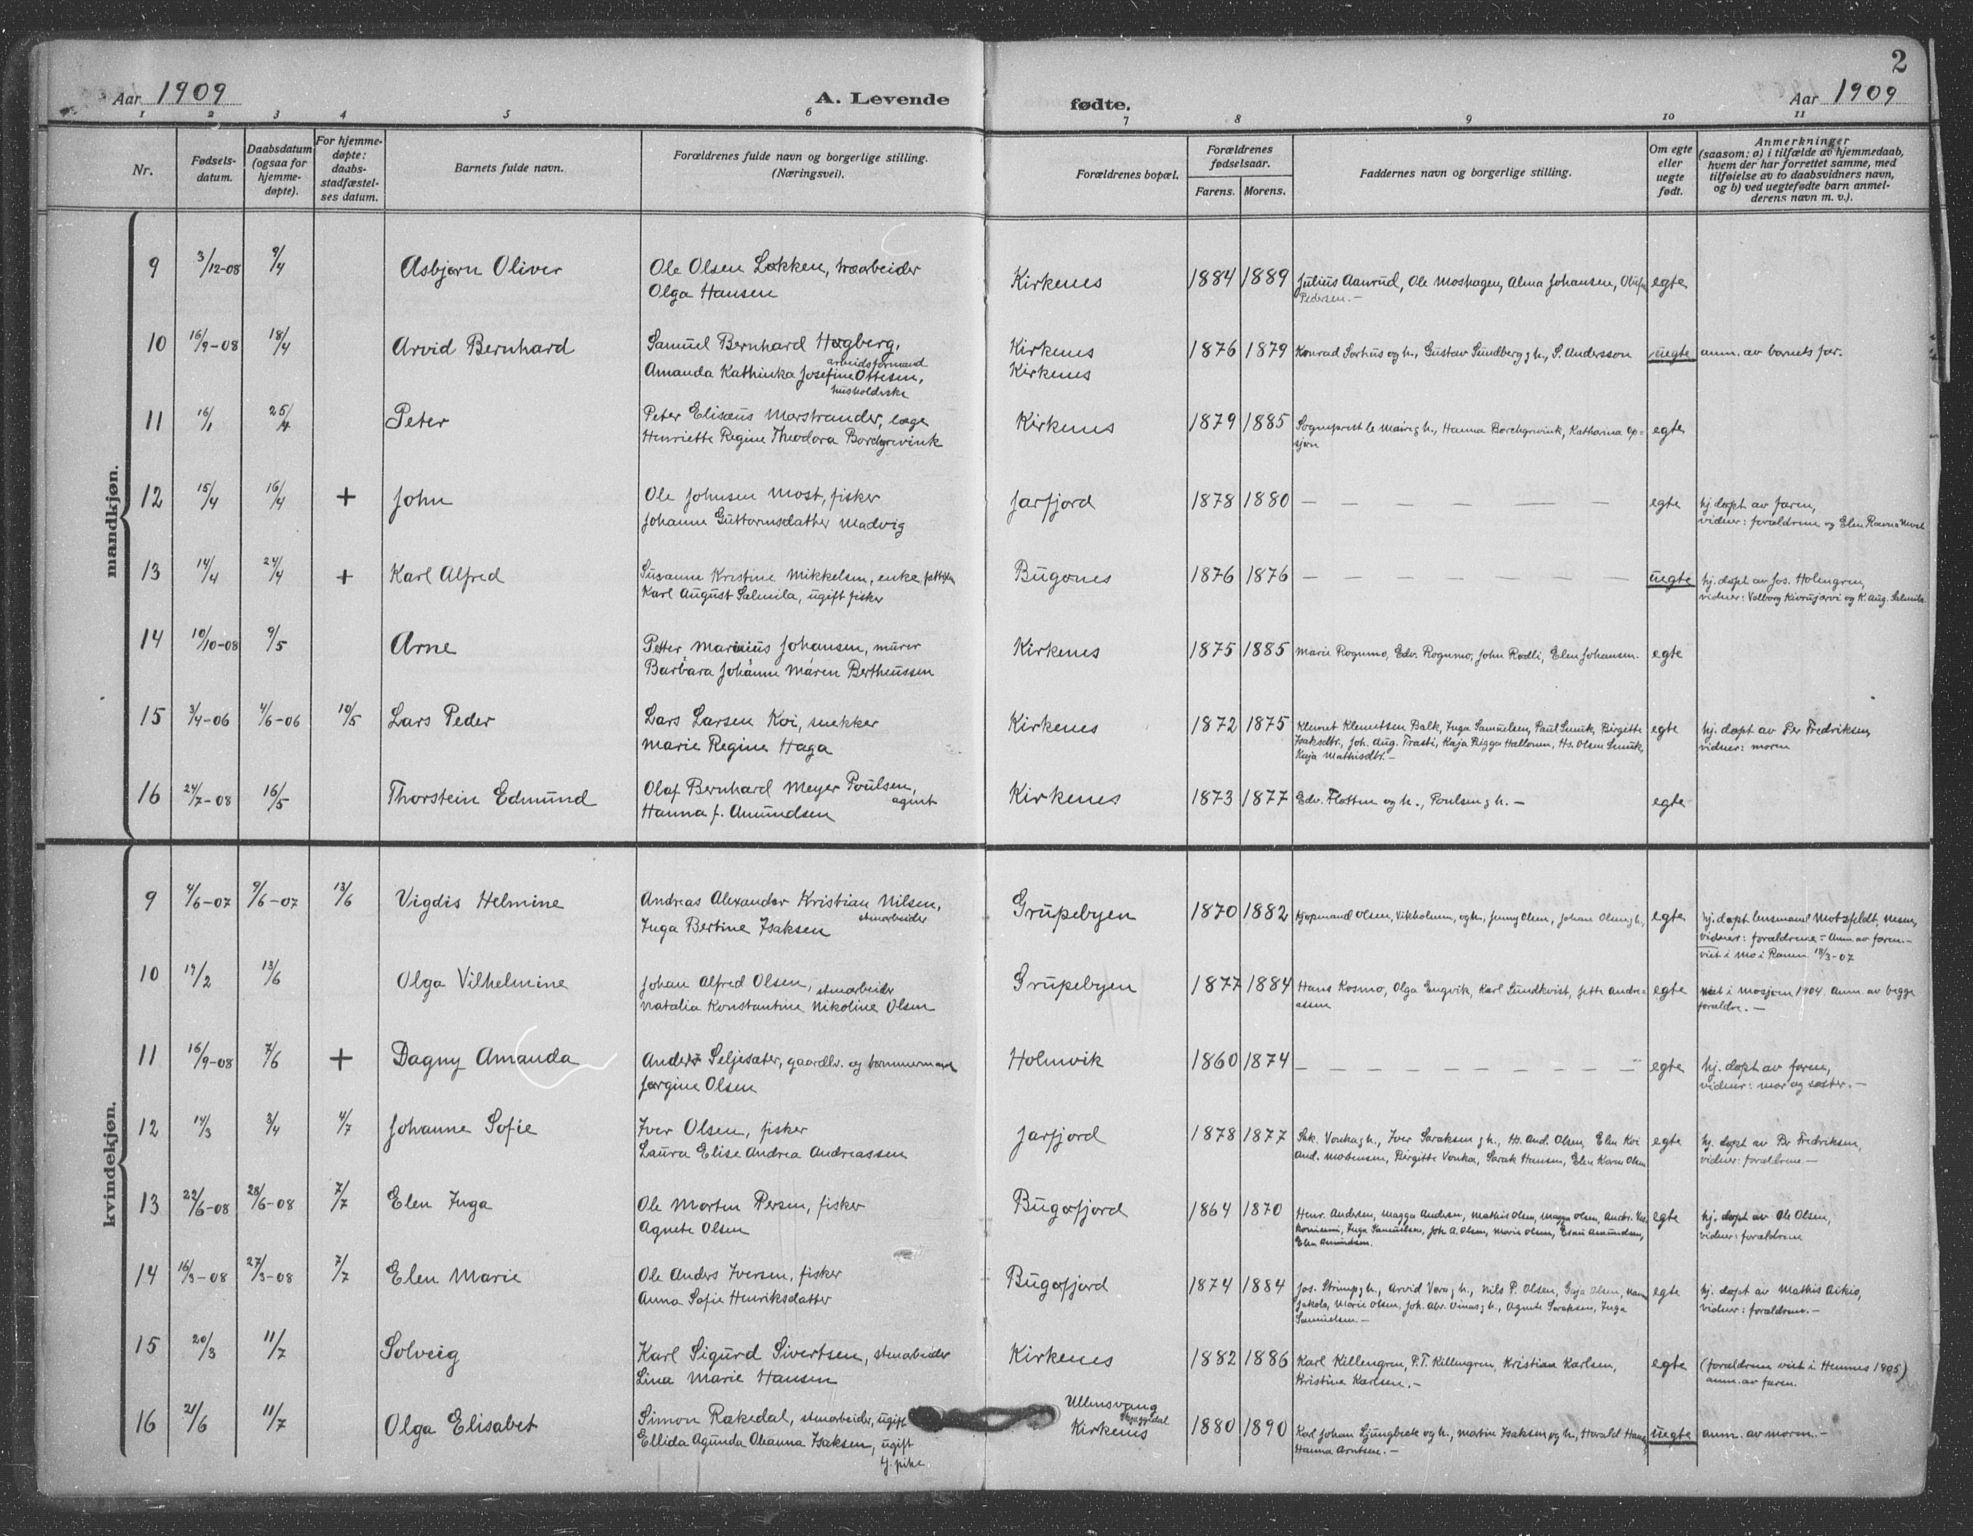 2
Aar 1909 A. Levende fødte. Aar 1909
1 2 3 4 5 6 7 8 9 10 11
Nr. Fødsels-datum. Daabsdatum (ogsaa for hjemme-døpte). For hjemme-døpte: daabs-stadfæstel-ses datum. Barnets fulde navn. Forældrenes fulde navn og borgerlige stilling. (Næringsvei). Forældrenes bopæl. Forældrenes fødselsaar. Farens. Morens. Faddernes navn og borgerlige stilling. Om egte eller uegte født. Anmerkninger (saasom: a) i tilfælde av hjemmedaab, hvem der har forrettet samme, med tilføielse av to daabsvidners navn, og b) ved uegtefødte barn anmel-derens navn m. v.).
mandkjøn.
9 3/12-08 9/4 Asbjørn Oliver Ole Olsen Løkken, træarbeider Kirkenes 1884 1889 Julius Aanrud, Ole Moshagen, Alma Johansen, egte
Olga Hansen Pedersen.-
10 16/9-08 18/4 Arvid Bernhard Samuel Bernhard Høgberg, Kirkenes 1876 1879 Konrad Sørhus og h., Gustav Sundberg g h., S. Andersson uegte anm. av barnets far.
arbeidsformand
Amanda Kathinka Josefine Ottesen, Kirkenes
husholderske
11 16/1 25/4 Peter Peter Elisæus Marstrander, læge Kirkenes 1879 1885 Sogneprest le Maire g h., Hanna Borchgrevink, Katharina Op= egte
Henriette Regine Theodora Borchgrevink sjøn
12 15/4 16/4 + John Ole Johnsen Most, fisker Jarfjord 1878 1880 — — — — — egte hj. døpt av faren,
Johanne Guttormsdatter Madvig vidner: forældrene og Elen Ravna Most
13 14/4 24/4 + Karl Alfred Susanne Kristine Mikkelsen, enke Bugønes 1876 1876 — — — — — uegte hj. døpt av Jos. Holmgren,
Karl August Salmila, ugift fisker vidner: Valborg Kivrujærvi og K. Aug. Salmila.
14 10/10-08 9/5 Arne Petter Marinius Johansen, murer Kirkenes 1875 1885 Marie Rognmo, Edv. Rognmo, John Rødli, Elen Johansen. egte
Barbara Johanne Maren Bertheussen
15 3/4-06 4/6-06 10/5 Lars Peder Lars Larsen Koi, snekker Kirkenes 1872 1875 Klemet Klemetsen Balk, Inga Samuelsen, Paul Smuk, Birgitte egte hj. døpt av Per Fredriksen,
Marie Regine Haga Isaksdtr., Joh. Aug. Trasti, Kaja Bigga Halloum, Hs. Olsen Smuk, vidner: moren
Kaja Mathisdtr.-
16 24/7-08 16/5 Thorstein Edmund Olaf Bernhard Meyer Poulsen, Kirkenes 1873 1877 Edv. Flotten og h., Poulsen g h.- egte
agent
Hanna f. Amundsen
kvindekjøn.
9 4/6-07 9/6-07 13/6 Vigdis Helmine Andreas Alexander Kristian Nilsen, Grubebyen 1870 1882 Kjøpmand Olsen, Vikholmen, og h., Jenny Olsen, Johan Olsen g h., egte hj. døpt lensmand Motzfeldt, Nesna,
stenarbeider
Inga Bertine Isaksen vidner: forældrene - Anm. av faren.-
viet i Mo i Ranen 18/3-07
10 17/2 13/6 Olga Vilhelmine Johan Alfred Olsen, stenarbeider Grubebyen 1877 1884 Hans Kosmo, Olga Engvik, Karl Lundkvist, Jette Andre= egte viet i Mosjøen 1904. Anm. av begge
Natalia Konstantine Nikoline Olsen assen forældre.-
11 16/9-08 7/6 + Dagny Amanda Anders Seljesæter, gaardbr. og tømmermand Holmvik 1860 1874 — — — — — egte hj. døpt av faren,
Jørgine Olsen vidner: mor og søster.-
12 14/3 3/4 4/7 Johanne Sofie Iver Olsen, fisker Jarfjord 1878 1877 Isk. Vonka g h., Iver Saraksen g h., Hs. And. Olsen, Elen Koi egte hj. døpt av Per Fredriksen,
Laura Elise Andrea Andreassen And. Mortensen, Birgitte Vonka, Sarak Hansen, Elen Karen Olsen vidner: forældrene-
13 22/6-08 28/6-08 7/7 Elen Inga Ole Morten Persen, fisker Bugøfjord 1864 1870 Henr. Andersen, Magga Andersen, Mathis Olsen, Magga Olsen, Andr. egte hj. døpt av Ole Olsen,
Agnete Olsen Inga Samuelsen, Joh. A. Olsen, Marie Olsen, Esau Amundsen, vidner: forældrene
Elen Amundsen.
14 16/3-08 27/3-08 7/7 Elen Marie Ole Anders Iversen, fisker Bugøfjord 1874 1884 Jos. Strimp g h., Arvid Vara g h., Nils P. Olsen, Gaja Olsen, egte hj. døpt av Mathis Aikio,
Anna Sofie Henriksdatter Jakola, Marie Olsen, Joh. Abr. Vinas g h., Agnete Saraksen, Inga vidner: forældrene.-
Samuelsen-
15 20/3 11/7 Solveig Karl Sigurd Sivertsen, stenarbeider Kirkenes 1882 1886 Karl Killengren, P.T. Killengren, Kristian Karlsen, egte (forældrene viet i Hemnes 1905)
Lina Marie Hansen Kristine Karlsen.- anm. av faren.
16 21/6 11/7 Olga Elisabet Simon Rækedal, stenarbeider, ugift Ullensvang Skjæggedal 1880 1890 Karl Johan Ljungbeck og h., Martin Isaksen og h., Harald Hansen uegte anm. av moren.-
Ellida Agunda Ohanna Isaksen, ugift Kirkenes Hanna Arntsen.-
tj. pike